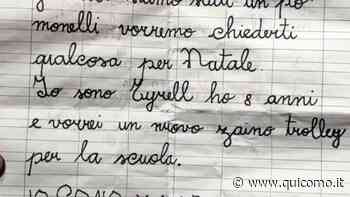 siamo stati un po'
monelli vorremo chiederti
qualcosa per Natale.
Io sono Tyrell ho 8 anni
e vorrei un nuovo zaino trolley
per la scuola.
IO SONO
www.quicomo.it